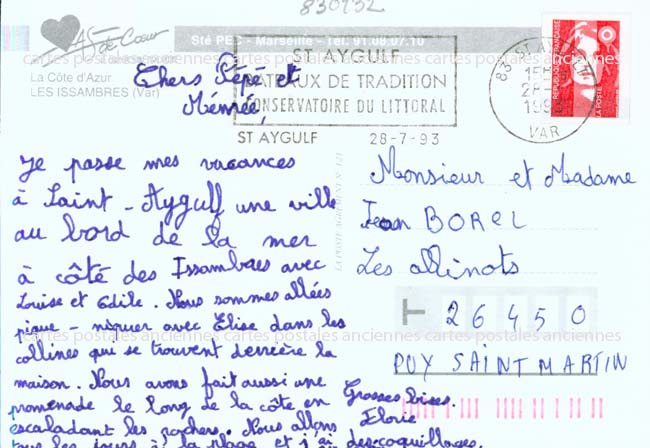 830932
AS de Cœur
Sté PEC - Marseille - Tel. 91.08.07.10
La Côte d'Azur
LES ISSAMBRES (Var)
ST AYGULF
BATEAUX DE TRADITION
CONSERVATOIRE DU LITTORAL
ST AYGULF 28-7-93
83 ST AYGULF
VAR
REPUBLIQUE FRANÇAISE
LA POSTE
Chers Pépé et
Mémée,
Je passe mes vacances
à Saint-Aygulf une ville
au bord de la mer
à côté des Issambres avec
Louise et Edile. Nous sommes allées
pique-niquer avec Elise dans les
collines qui se trouvent derrière la
maison. Nous avons fait aussi une
promenade le long de la côte en
escaladant les rochers. Nous allons
tous les jours à la plage et j'ai des coquillages.
Grosses bises.
Elorie
Monsieur et Madame
Jean BOREL
Les allinots
26450
PUY SAINT MARTIN
cartes postales anciennes cartes postales anciennes cartes postales anciennes